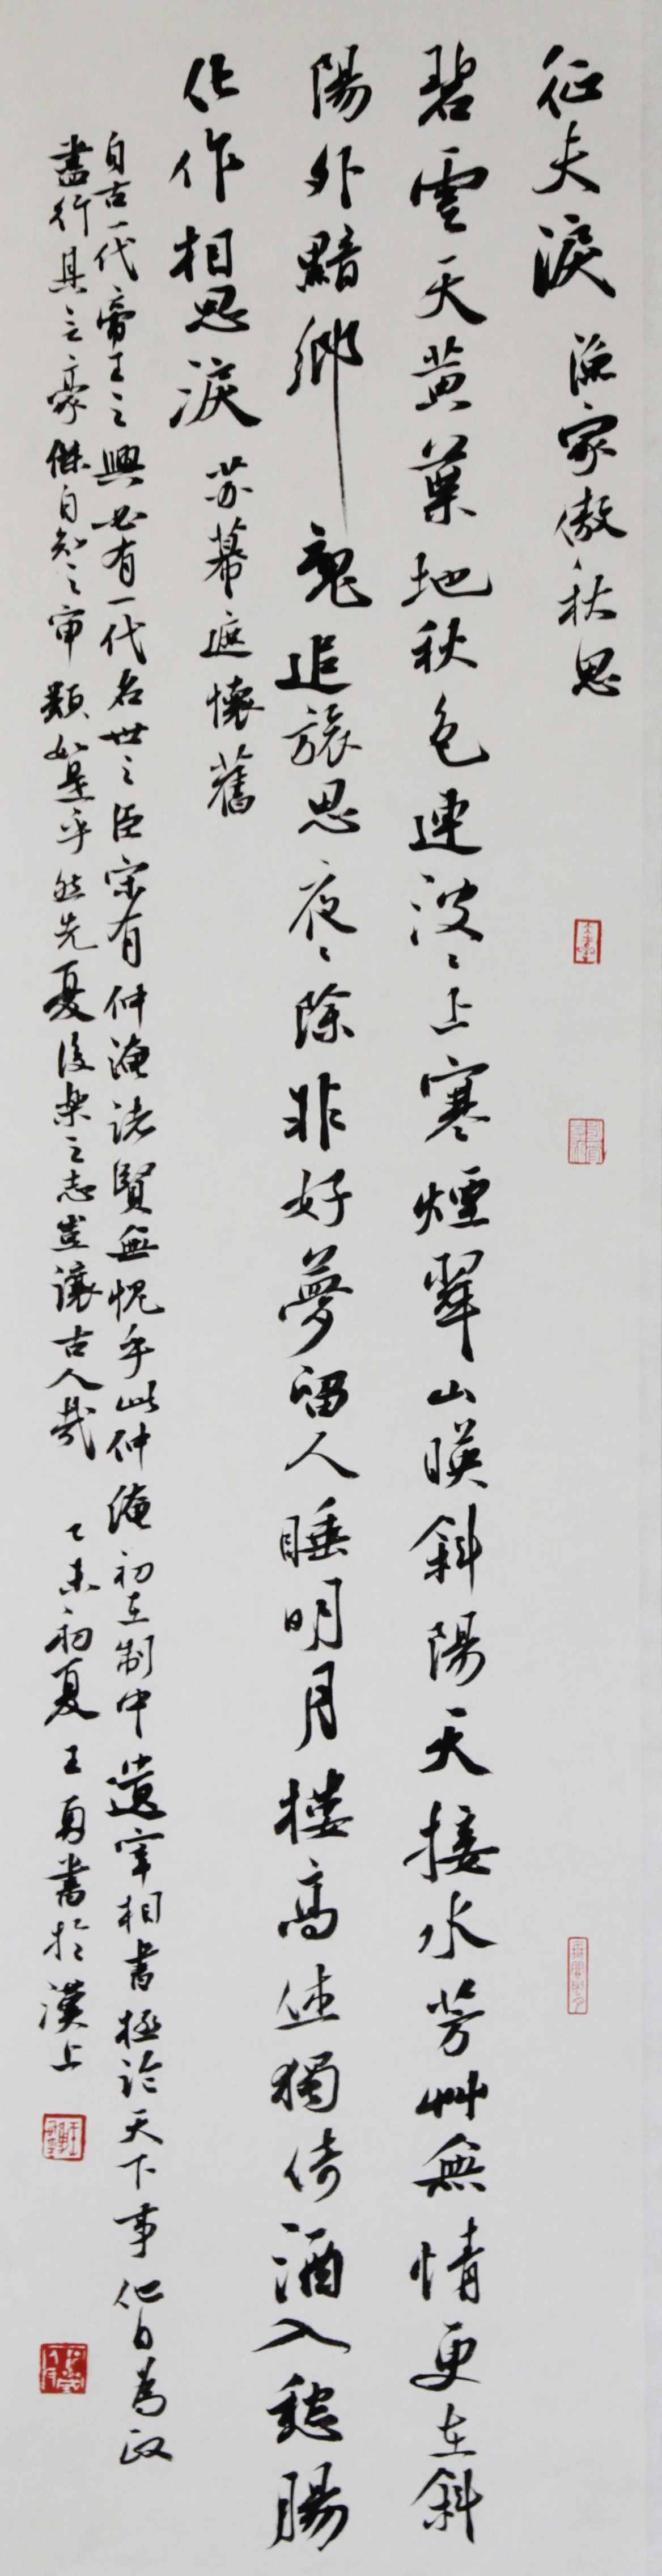 征夫淚 漁家傲、秋思
碧雲天黄葉地秋色連波、上寒煙翠山暎斜陽天接水芳艸無情更在斜
陽外黯鄉魂追旅思夜、除非好夢留人睡明月樓高休獨倚酒入愁腸
化作相思淚 蘇幕遮懷舊
自古一代帝王之興必有一代名世之臣宋有仲淹諸賢無愧乎此仲淹初在制中遺宰相書極論天下事他日為政
盡行其言豪傑自知之審類如是乎然先憂後樂之志豈讓古人哉 乙未初夏王勇書於漢上